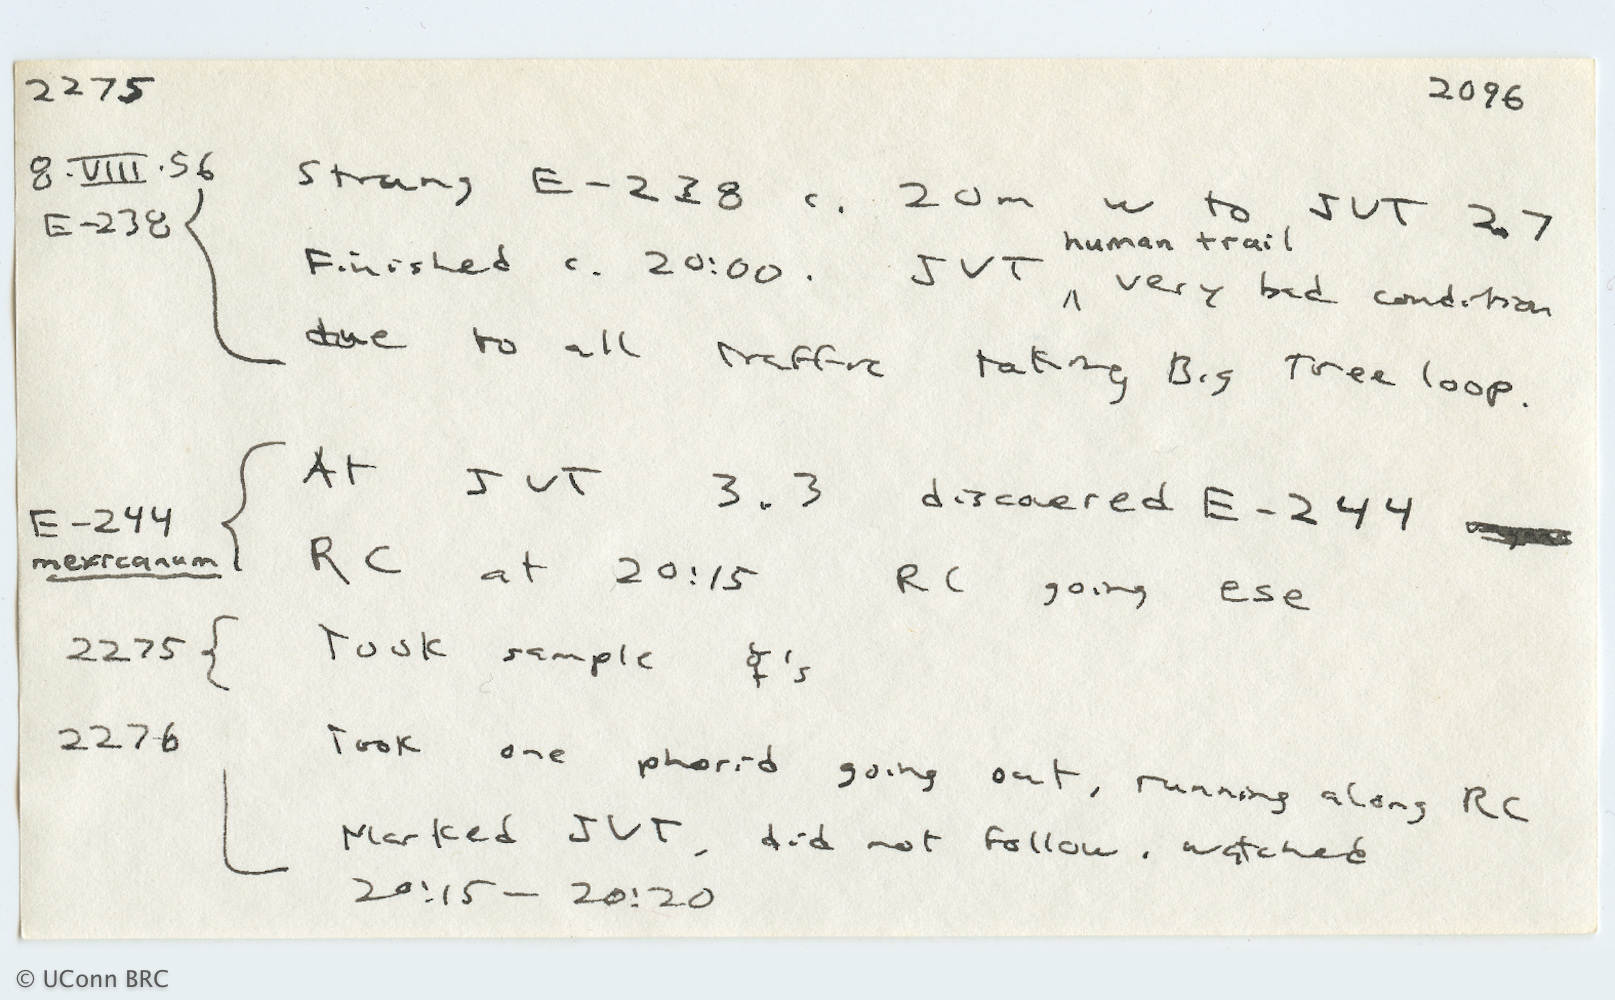 2275 2096
8.VIII.56 Strung E-238 c. 20m w to JVT 2.7
E-238 human trail
Finished c. 20:00. JVT ^ very bad condition
due to all traffic taking Big Tree loop.
At JVT 3.3 discovered E-244
E-244
mexicanum RC at 20:15 RC going ese
2275 { Took sample ☿'s
2276 Took one phorid going out, running along RC
Marked JVT, did not follow. watched
20:15 – 20:20
© UConn BRC